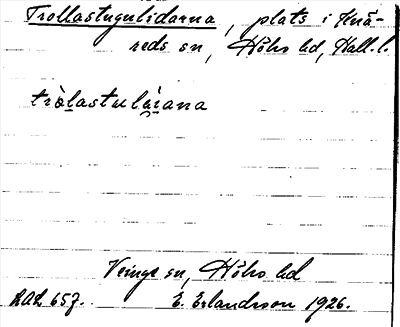 Trollastugulidarna, plats i Knä-
reds sn, Höks hd, Hall. l.
tròlastulàiana
Veinge sn, Höks hd
DAL 657. E. Erlandsson 1926.